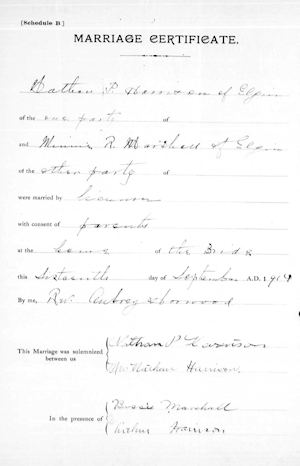 [Schedule B]
MARRIAGE CERTIFICATE.
Nathan P. Harrison of Elgin
of the one part of
and Minnie R. Marshall of Elgin
of the other party of
were married by license
with consent of parents
at the home of the Bride
this Sixteenth day of September A.D. 1914
By me, Rev. Aubrey Sherwood
This Marriage was solemnized
between us
Nathan P Harrison
Mrs Nathan Harrison.
In the presence of
Bessie Marshall
Harrison